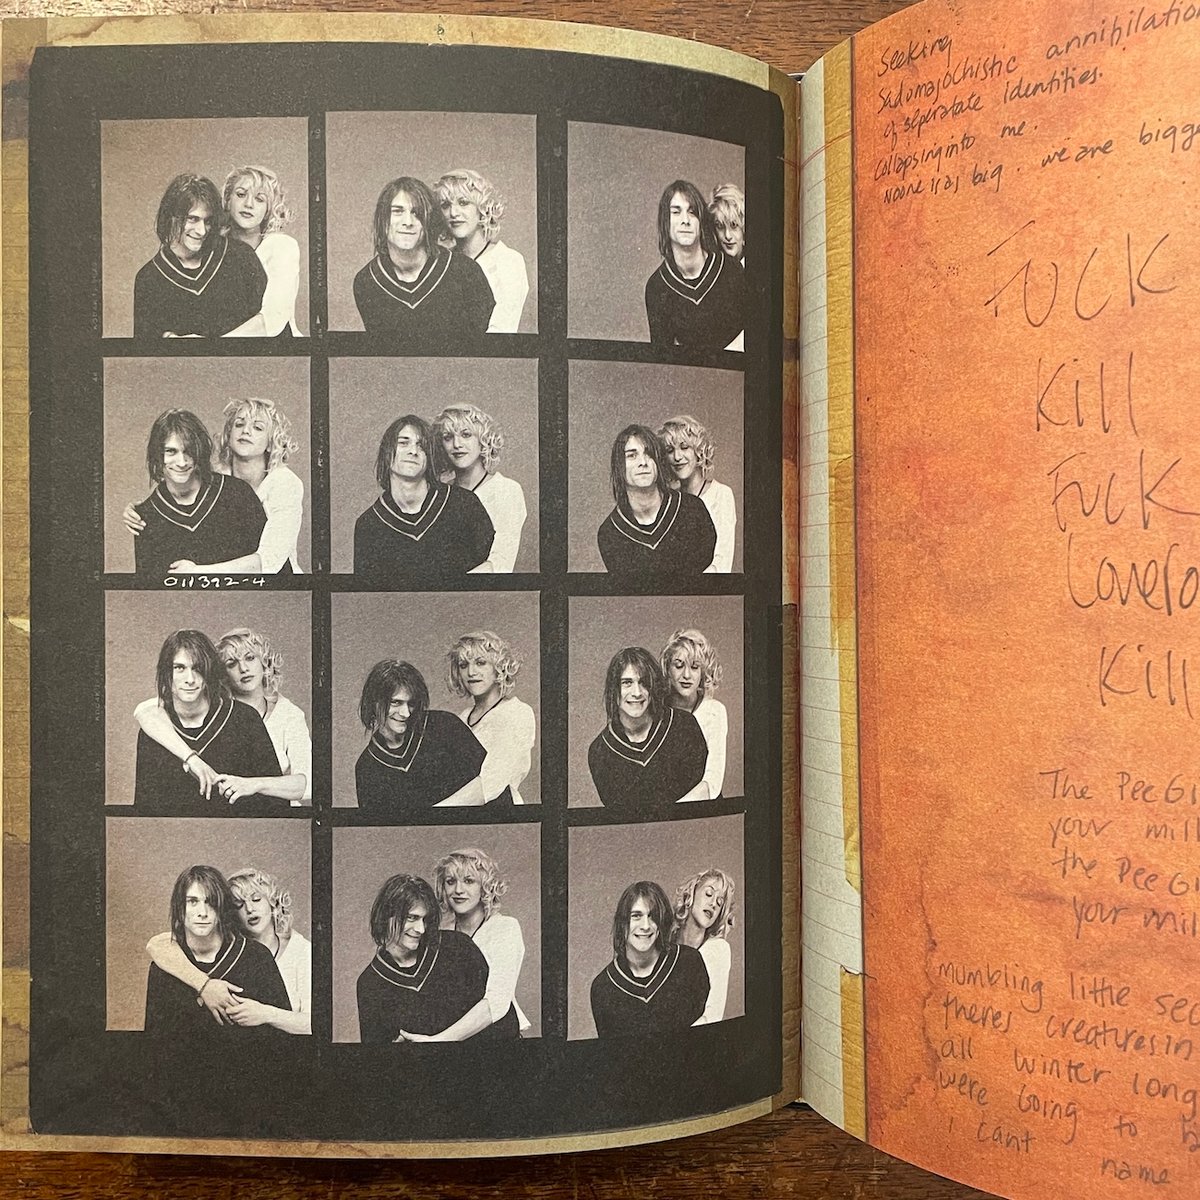 011392-4
Seeking
Sadomasochistic annihilation
of seperatate identities.
Collapsing into me.
Noone is as big. we are bigge
Fuck
Kill
Fuck
Lovero
Kill
The Pee Gi
your mil
the Pee G
your mil
mumbling little see
theres creatures in
all winter long
were Going to b
i cant name